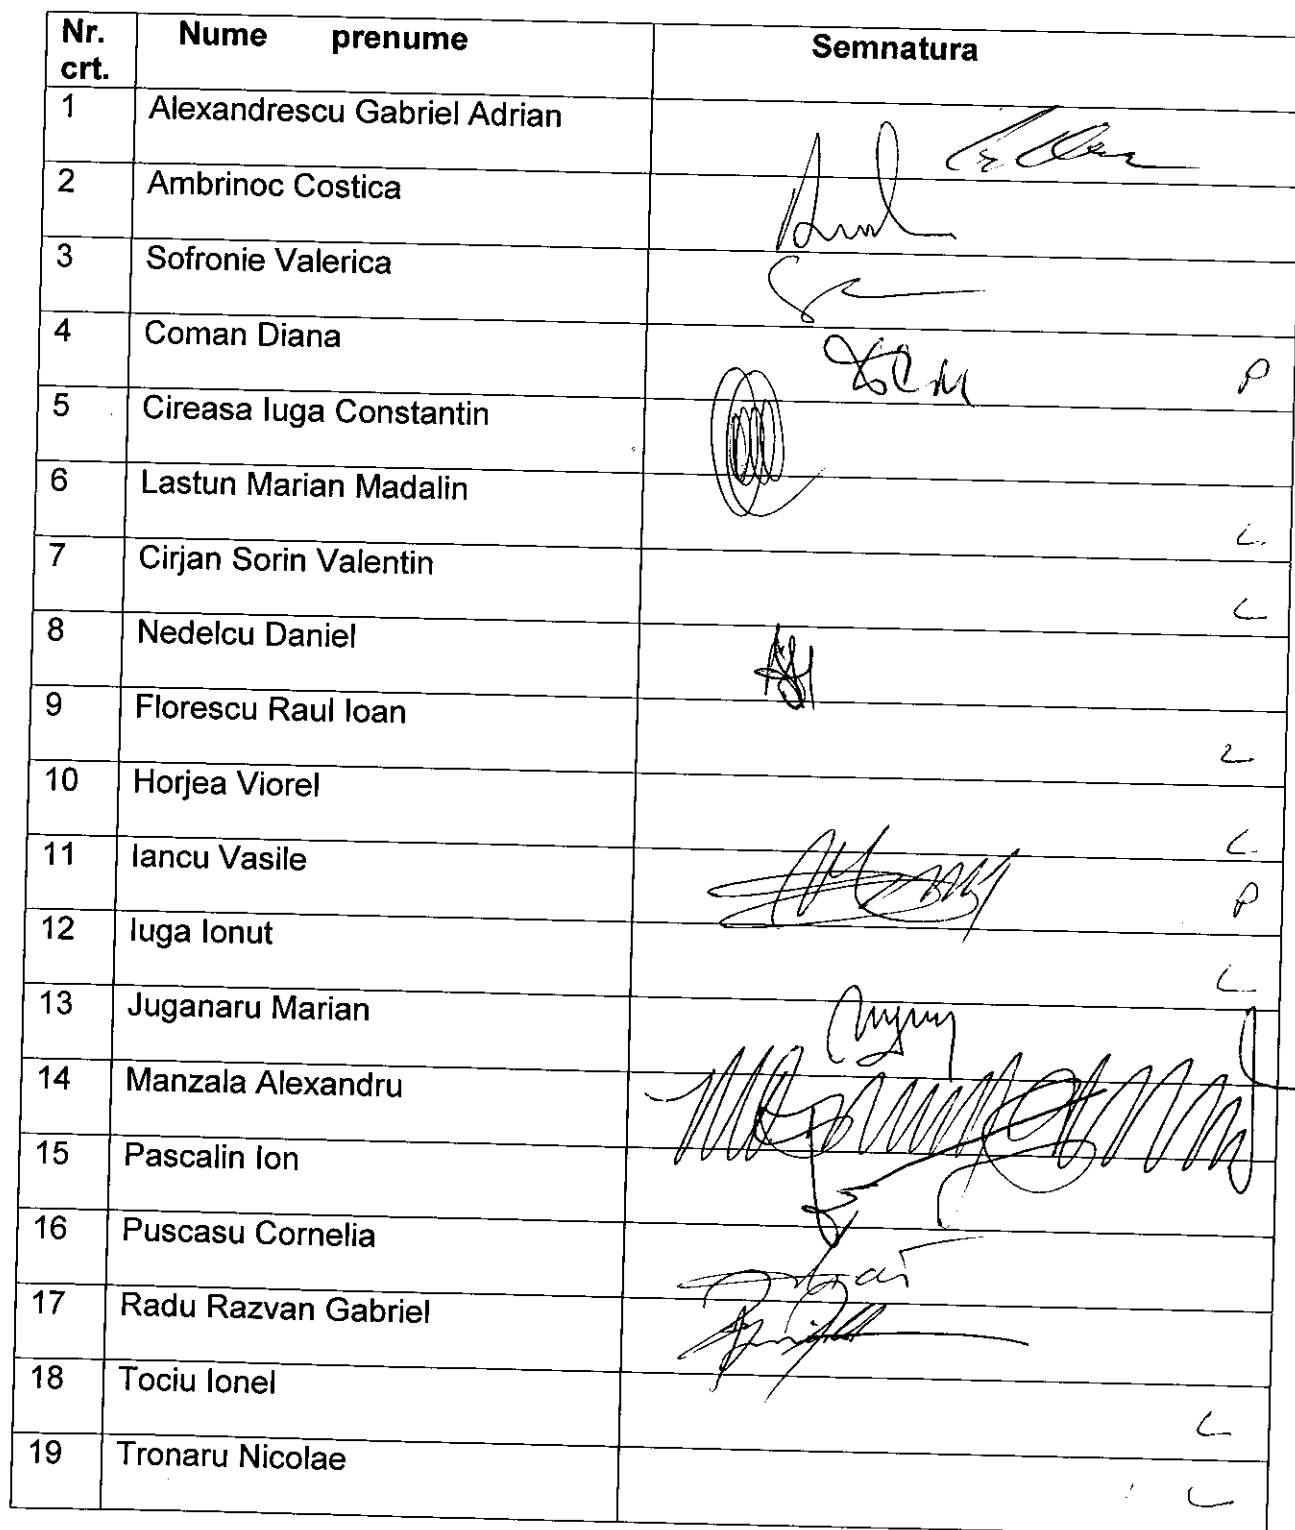 Nr. crt. Nume prenume Semnatura
1 Alexandrescu Gabriel Adrian
2 Ambrinoc Costica
3 Sofronie Valerica
4 Coman Diana P
5 Cireasa Iuga Constantin
6 Lastun Marian Madalin
7 Cirjan Sorin Valentin
8 Nedelcu Daniel
9 Florescu Raul Ioan
10 Horjea Viorel
11 Iancu Vasile P
12 Iuga Ionut
13 Juganaru Marian
14 Manzala Alexandru
15 Pascalin Ion
16 Puscasu Cornelia
17 Radu Razvan Gabriel
18 Tociu Ionel
19 Tronaru Nicolae